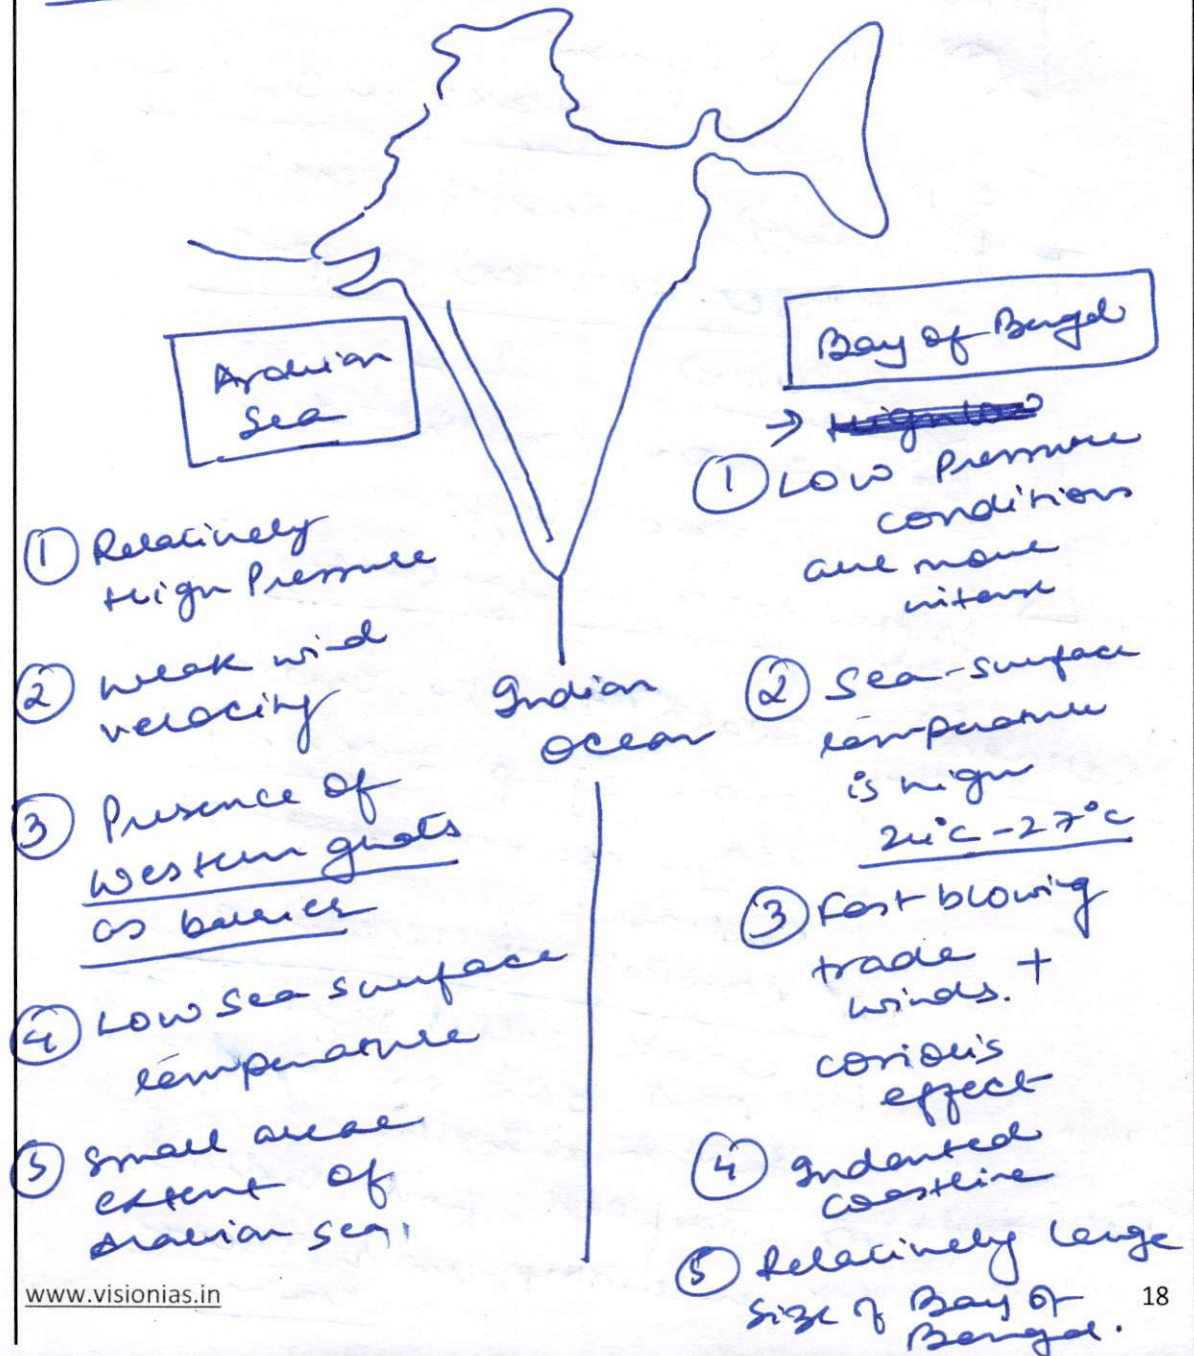 Arabian
Sea
① Relatively
High Pressure
② Weak wind
velocity
③ Presence of
Western ghats
as barrier
④ Low Sea surface
temperature
⑤ Small areal
extent of
Arabian sea.
Indian
Ocean
Bay of Bengal
→
① Low Pressure
conditions
are more
intense
② Sea-surface
temperature
is high
24°C-27°C
③ Fast blowing
trade +
winds.
coriolis
effect
④ Indented
coastline
⑤ Relatively large
size of Bay of
Bengal.
www.visionias.in
18